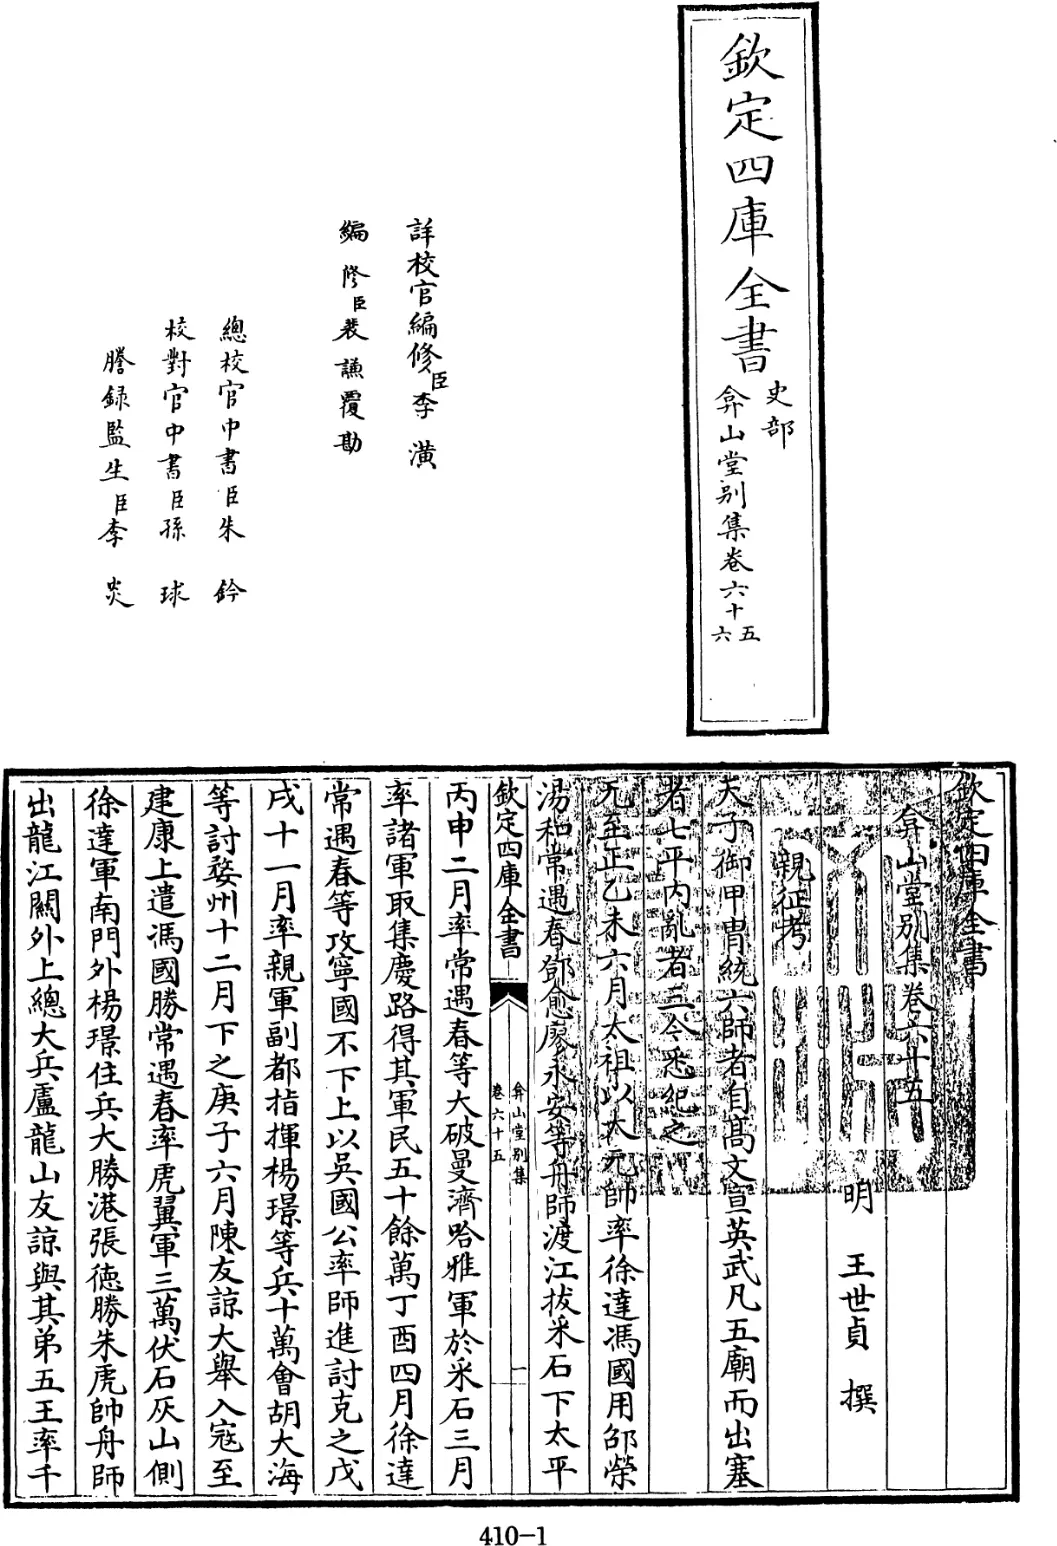 欽定四庫全書
史部
弇山堂别集卷六十五
六
詳校官編修臣李潢
編修臣裴謙覆勘
總校官中書臣朱鈐
校對官中書臣孫球
謄録監生臣李炎
欽定四庫全書
弇山堂别集卷六十五
明 王世貞 撰
親征考
天子御甲胄統六師者自髙文宣英武凡五廟而出塞
者七平内亂者三今悉紀之
元至正乙未六月太祖以大元帥率徐達馮國用邵榮
湯和常遇春鄧愈廖永安等舟師渡江拔采石下太平
欽定四庫全書
弇山堂别集
卷六十五
一
丙申二月率常遇春等大破曼濟哈雅軍於采石三月
率諸軍取集慶路得其軍民五十餘萬丁酉四月徐達
常遇春等攻寧國不下上以吳國公率師進討克之戊
戌十一月率親軍副都指揮楊璟等兵十萬會胡大海
等討婺州十二月下之庚子六月陳友諒大舉入寇至
建康上遣馮國勝常遇春率虎翼軍三萬伏石灰山側
徐達軍南門外楊璟住兵大勝港張徳勝朱虎帥舟師
出龍江闗外上總大兵盧龍山友諒與其弟五王率千
410-1